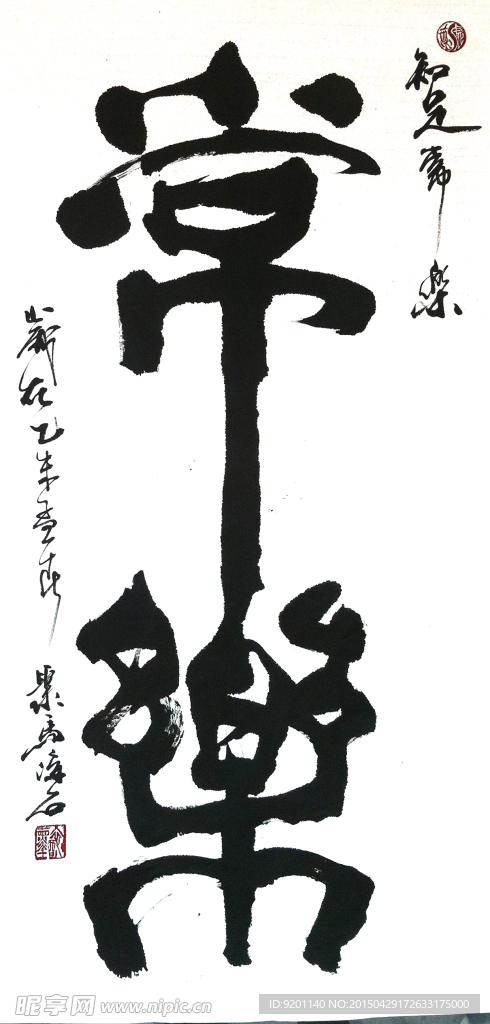 知足常樂
常樂
歲在乙未孟春
昵享网 www.nipic.cn
ID:9201140 NO:20150429172633175000